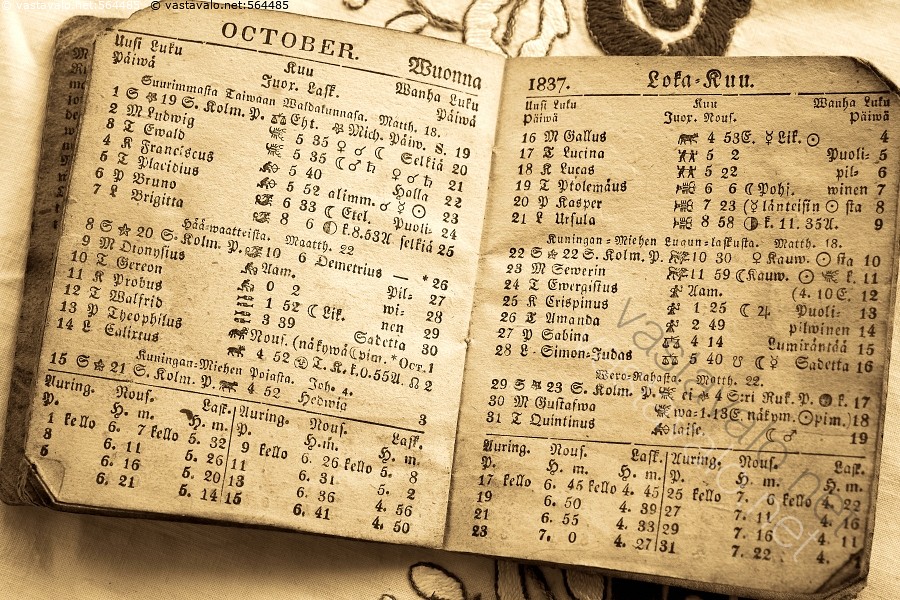 © vastavalo.net:564485 © vastavalo.net:564485
OCTOBER. Wuonna
Uusi Luku Kuu Wanha Luku
Päiwä Juox. Lask. Päiwä
Suurimmasta Taiwaan Waldakunnasa. Matth. 18.
1 S 19 S. Kolm. P. Eht. Mich. Päiw. S. 19
2 M Ludwig 5 35 ♀ ☌ ☾ Selkiä 20
3 T Ewald 5 35 ☾ ♂ ♄ ♀ ☌ ♄ 21
4 K Franciscus 5 40 Holla 22
5 T Placidius 5 52 alimm. ☌ ☿ ☉ 23
6 P Bruno 6 33 ☾ Etel. Puoli- 24
7 L Brigitta 8 6 k.8.53U selkiä 25
Hää-waatteista. Maatth. 22
8 S 20 S. Kolm. P. 10 6 Demetrius — *26
9 M Dionysius Aam. Pil- 27
10 T Gereon 0 2 wi- 28
11 K Probus 1 52 ☾ Lik. nen 29
12 T Walfrid 3 39 Sadetta 30
13 P Theophilus Nous. (näkywä ☾ pim. *Oct. 1
14 L Calixtus 4 52 T. K. k.0.55U. ☊ 2
Kuningan-Miehen Pojasta. Joh. 4.
15 S 21 S. Kolm. P. 4 52 Hedwig 3
Auring. Nous. Lask. Auring. Nous. Lask.
P. H. m. H. m. P. H. m. H. m.
1 kello 6. 7 kello 5. 32 9 kello 6. 26 kello 5. 8
3 6. 11 5. 26 11 6. 31 5. 2
5 6. 16 5. 20 13 6. 36 4. 56
6. 21 5. 14 15 6. 41 4. 50
1837. Loka-Kuu.
Uusi Luku Kuu Wanha Luku
Päiwä Juox. Nous. Päiwä
16 M Gallus 4 53E. ☿ Lik. ☉ 4
17 T Lucina 5 2 Puoli- 5
18 K Lucas 5 22 pil- 6
19 T Ptolemäus 6 6 ☾ Pohj. winen 7
20 P Kasper 7 23 (☿ länteisin ☉ sta 8
21 L Ursula 8 58 k. 11. 35U. 9
Kuningan-Miehen Luqun-laskusta. Matth. 18.
22 S 22 S. Kolm. P. 10 30 ♀ Kauw. ☉ sta 10
23 M Sewerin 11 59 ☾ Kauw. ☉ k. 11
24 T Ewergistus Aam. (4. 10 E. 12
25 K Crispinus 1 25 ☾ ♃ Puoli- 13
26 T Amanda 2 49 pilwinen 14
27 P Sabina 4 14 Lumiräntää 15
28 L Simon-Judas 5 40 ☋ ☾ ☿ Sadetta 16
Wero-Rahasta. Matth. 22.
29 S 23 S. Kolm. P. ei 4 S:ri Ruk. P. k. 17
30 M Gustafwa wa- 1.13E. näkym. ☉ pim.) 18
31 T Quintinus laise. ☾ ♂ 19
Auring. Nous. Lask. Auring. Nous. Lask.
P. H. m. H. m. P. H. m. H. m.
17 kello 6. 45 kello 4. 45 25 kello 7. 6 kello 4. 22
19 6. 50 4. 39 27 7. 11 4. 16
21 6. 55 4. 33 29 7. 16 4. 11
23 7. 0 4. 27 31 7. 22 4.
vastavalo.net